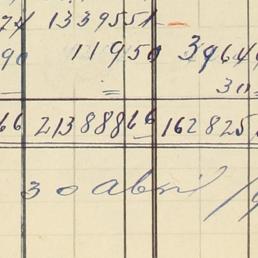 74 1339551
90 11950 39649
30
66 21388866 162825
30 abril /9